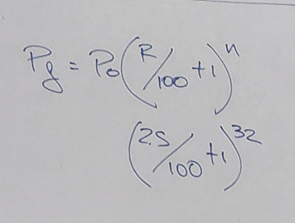 Pg = Po(R/100 +1)^n
(2.5/100 +1)^32